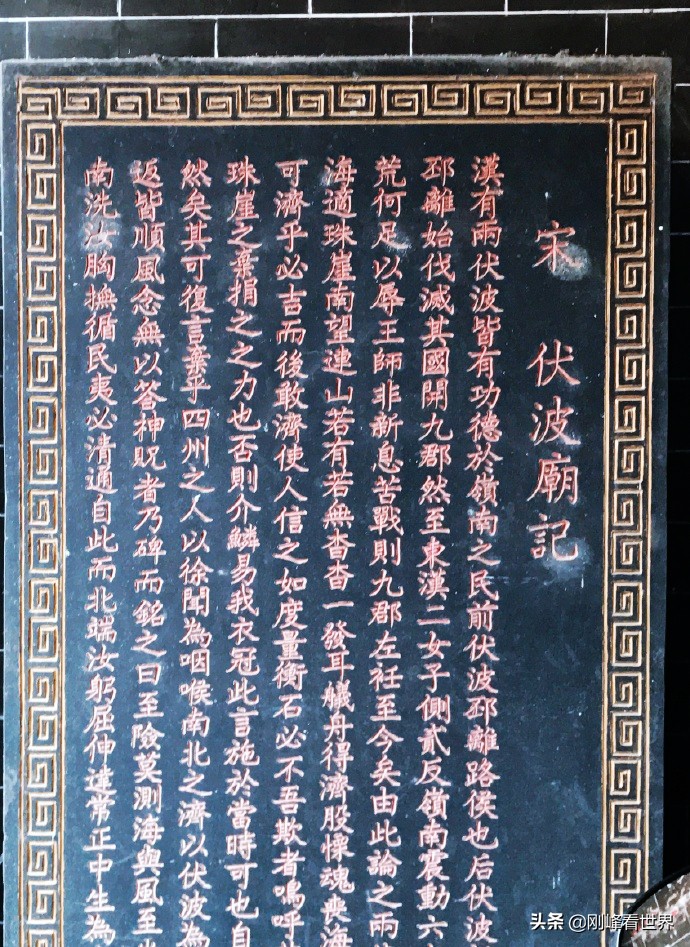 宋 伏波廟記
漢有兩伏波皆有功德於嶺南之民前伏波邳離路侯也后伏波
邳離始伐滅其國開九郡然至東漢二女子側貳反嶺南震動六
荒何足以辱王師非新息苦戰則九郡左衽至今矣由此論之兩
海適珠崖南望連山若有若無杳杳一發耳艤舟得濟股慄魂喪海
可濟乎必吉而後敢濟使人信之如度量衡石必不吾欺者嗚呼
珠崖之棄捐之之力也否則介鱗易我衣冠此言施於當時可也自
然矣其可復言棄乎四州之人以徐聞為咽喉南北之濟以伏波為
返皆順風念無以答神貺者乃碑而銘之曰至險莫測海與風至
南洗汝胸撫循民夷必清通自此而北端汝躬屈伸達常正中生為
头条 @刚峰看世界